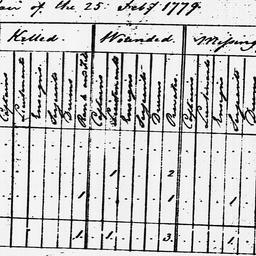 of the 25: Feby 1779.
Killed. Wounded. Missing
Captains Lieutenants Ensigns Serjts Drums Rank and File Captains Lieutenants Ensigns Serjts Drums Privates Captains Lieutenants Ensigns Serjts Drums
1 2
1 1 1
1. 1. 3. 1.